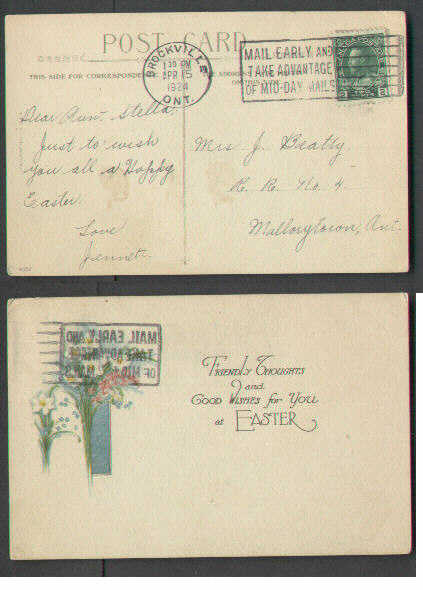 POST CARD
THIS SIDE FOR CORRESPONDENCE
ADDRESS
BROCKVILLE
1 30 PM
APR 15
1924
ONT.
MAIL EARLY AND
TAKE ADVANTAGE
OF MID-DAY MAILS
Dear Aunt Stella.
Just to wish
you all a Happy
Easter.
Love
Jennet.
Mrs J. Beatty
R. R. No. 4.
Mallorytown, Ont.
MAIL EARLY AND
TAKE ADVANTAGE
OF MID-DAY MAILS
FRIENDLY THOUGHTS
and
GOOD WISHES for YOU
at EASTER